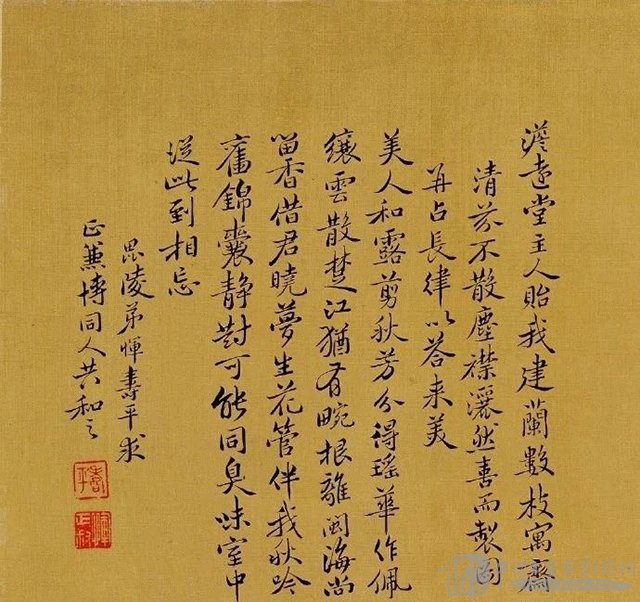 澹遠堂主人貽我建蘭數枝寓齋
清芬不散塵襟灑然喜而製圖
并占長律以荅来美
美人和露剪秋芳分得瑤華作佩
纕雲散楚江猶有畹根離閩海尚
留香借君曉夢生花管伴我秋吟
舊錦囊静對可能同臭味室中
從此到相忘
毘陵弟惲壽平求
正兼博同人共和之
壽平
惲正叔